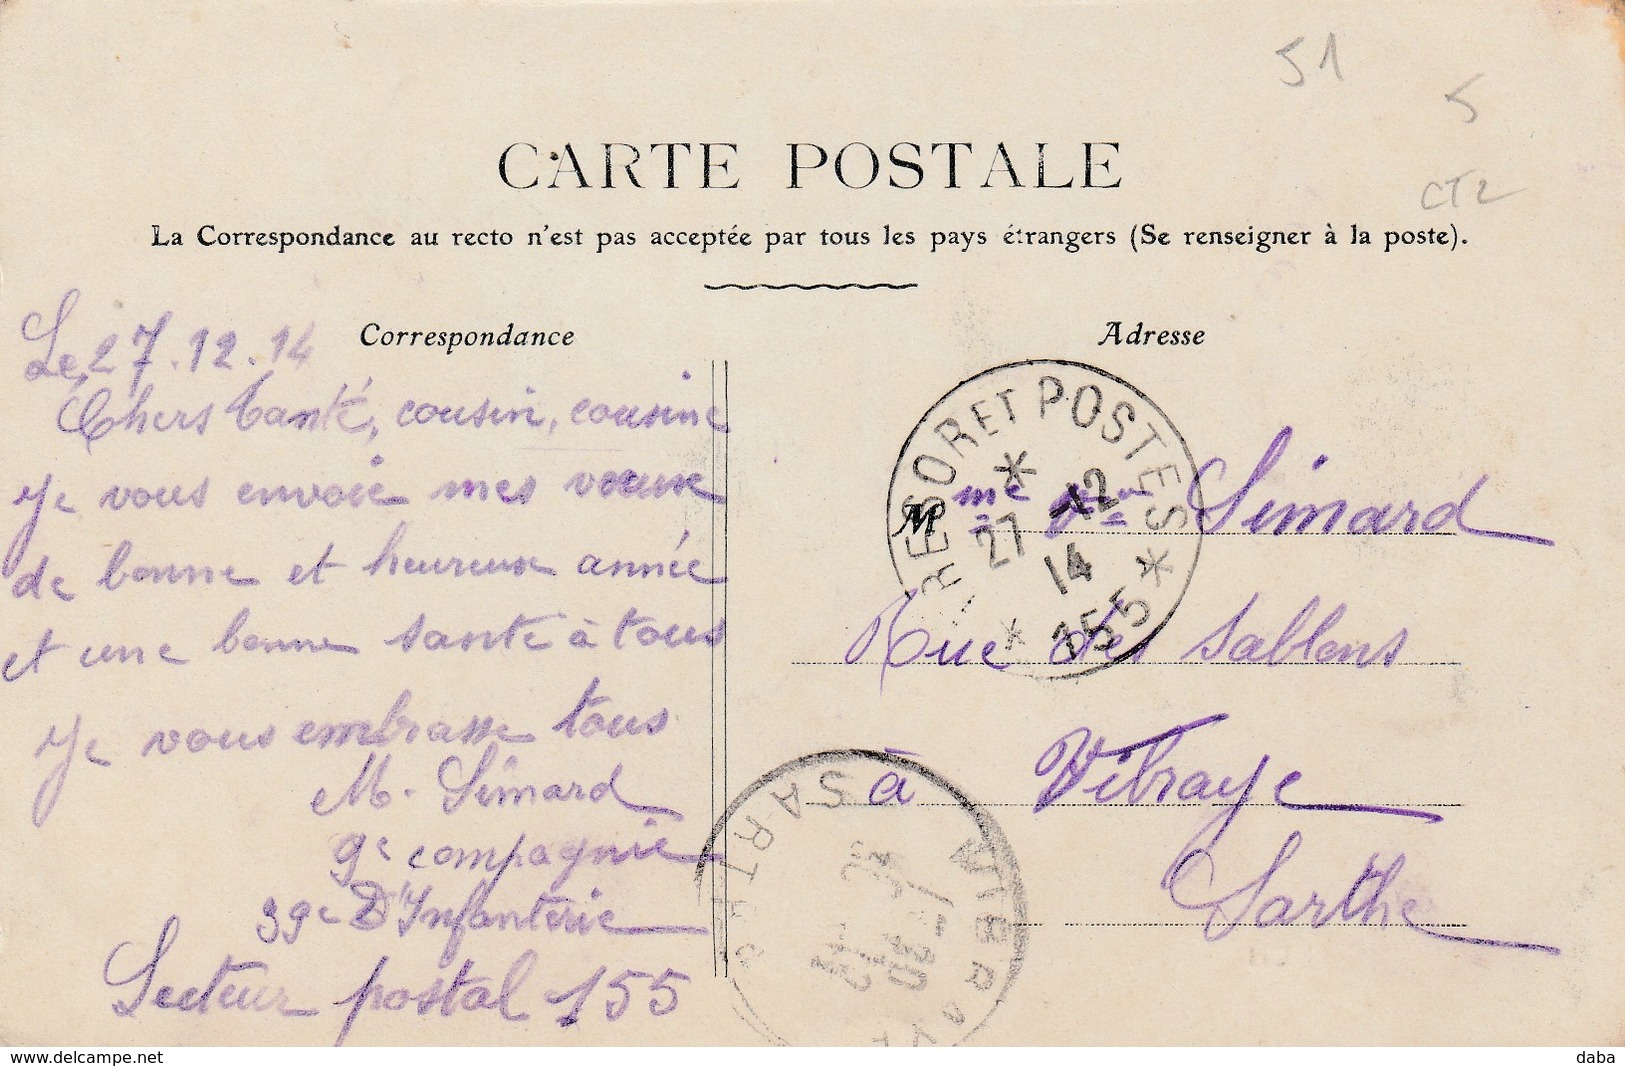 51
5
CT2
CARTE POSTALE
La Correspondance au recto n'est pas acceptée par tous les pays étrangers (Se renseigner à la poste).
Correspondance
Le 27.12.14
Chers tante, cousin, cousine
je vous envoie mes voeux
de bonne et heureuse année
et une bonne santé à tous
je vous embrasse tous
M. Simard
9e compagnie
39e D'Infanterie
Secteur postal 155
Adresse
TRESOR ET POSTES
27 12
14
* 155 *
Mme Vve Simard
Rue des Sablons
à Vibraye
Sarthe
VIBRAYE
SARTHE
www.delcampe.net
daba